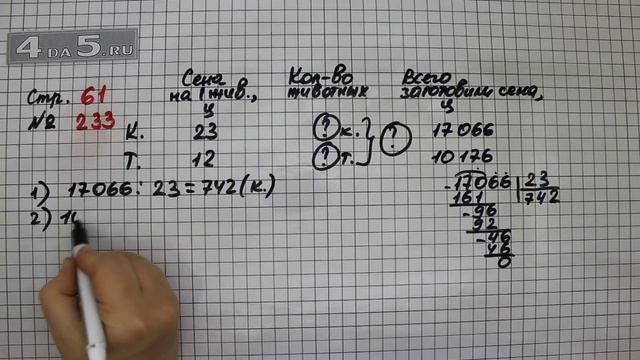 4DA5.RU
Стр. 61
№ 233
Сена на 1 жив., ц
Кол-во животных
Всего заготовили сена, ц
К. 23 ? к. } ? 17 066
Т. 12 ? т. 10 176
1) 17066 : 23 = 742 (к.)
2) 10
- 17066 | 23
161 | 742
- 96
92
- 46
46
0